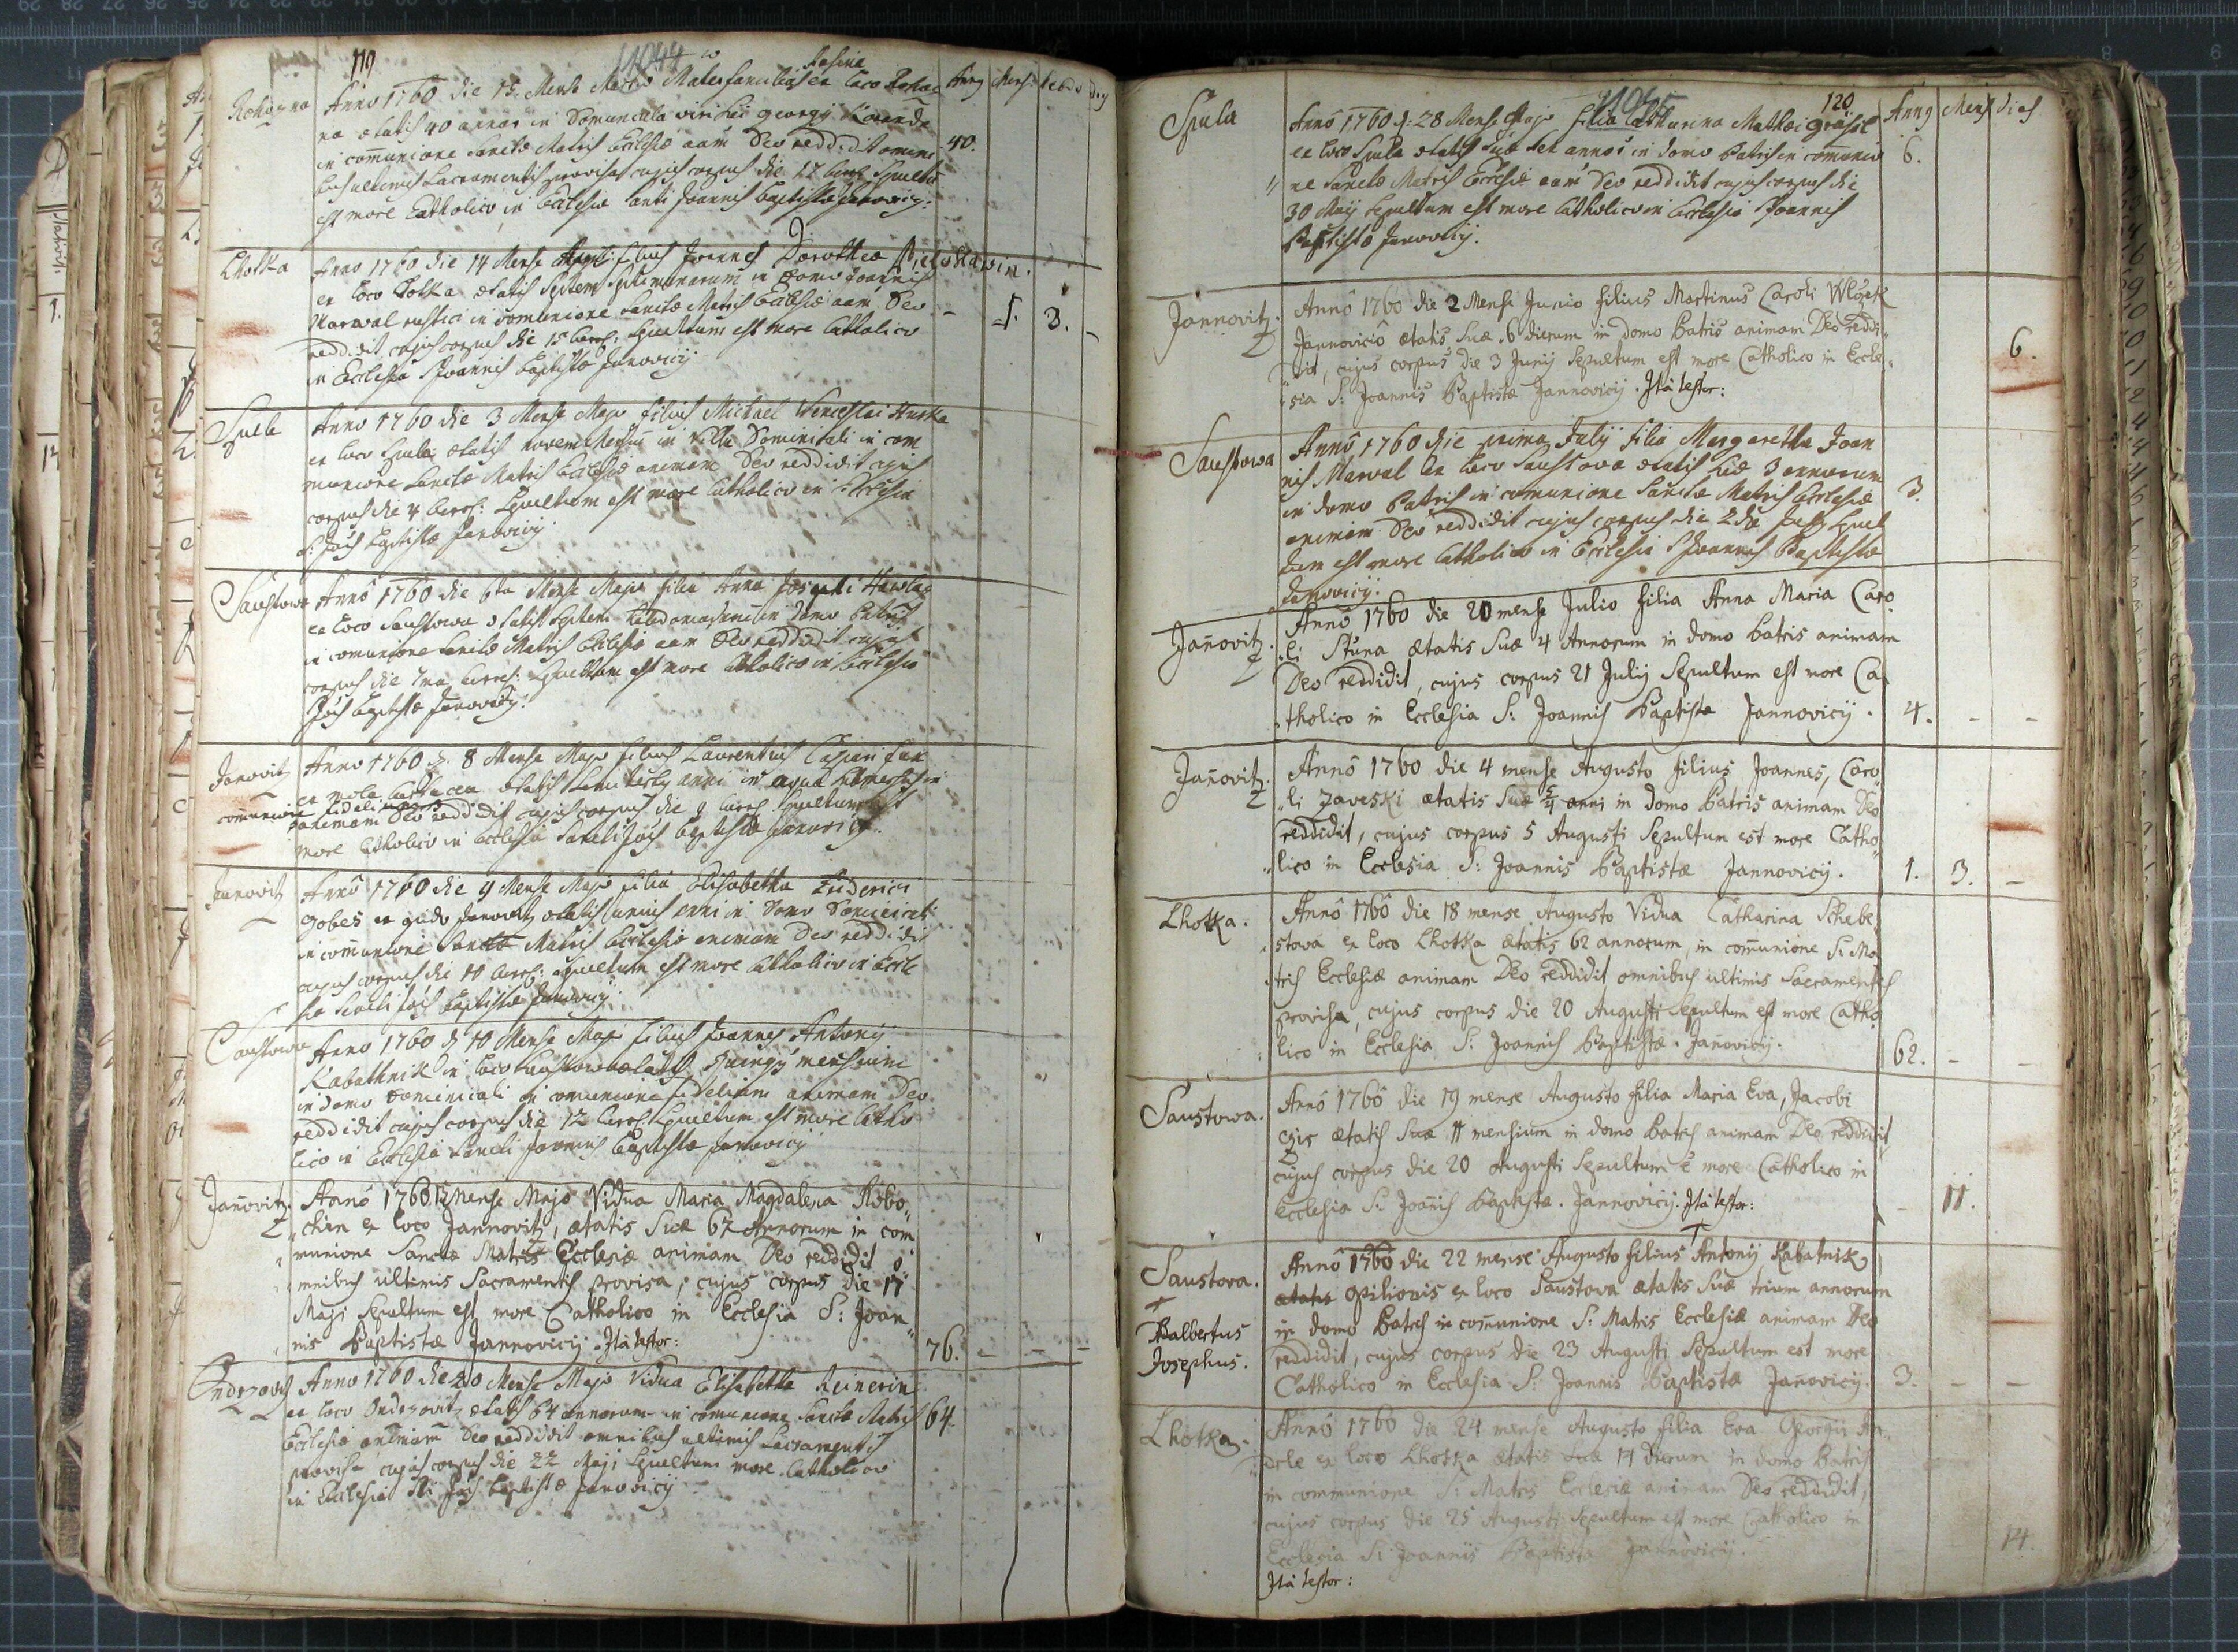 119
11044
Rosina
Rohozna
Anno 1760 die 15 Mense Martio Materfamilias ex loco Rohoz
na ætatis 40 annor in Domuncula viri sui georgij
in com̄unione Sanctæ Matris Ecclesiæ aam Deo reddidit omni
bus ultimis Sacramentis provisa cujus corpus die 17 Sepultu
est more Catholico in Ecclesia Sancti Joannis Baptistæ Janovicij.
Anny Mens
40.
Lhotka
Anno 1760 die 14 Mense filius Joannes Dorotheæ
ex loco Lhotka ætatis Septem Septimanarum in Domo Joannis
Marwal rustici in comunione Sanctæ Matris Ecclesiæ aam Deo
reddidit cujus corpus die 15 Sepultum est more Catholico
in Ecclesia S Joannis Baptistæ Janovicij
- 1. 3. -
Spule
Anno 1760 die 3 Mense Majo filius Michael Wenceslai
ex loco Spule ætatis novem Mensiu in Villa Dominicali in com
munione Sanctæ Matris Ecclesiæ animam Deo reddidit cujus
corpus die 4 Sepultum est more Catholico in Ecclesia
S: Jois Baptistæ Janovicij
Saustowa
Anno 1760 die 6ta Mense Majo filia Anna Josephi
ex loco Saustowa ætatis Septem hebdomadum in Domo Patris
in comunione Sanctæ Matris Ecclesiæ aam Deo reddidit cujus
corpus die 7ma Sepultum est more Catholico in Ecclesia
S Jois Baptistæ Janovicij.
Janovitz
Anno 1760 d. 8 Mense Majo filius Laurentius Caspari
ex mola ætatis anni in aqua submersus in
communione fidelium
animam Deo reddidit cujus corpus die 9 Sepultum est
more Catholico in Ecclesia Sancti Jois Baptistæ Janovicij.
Janovitz
Anno 1760 die 9 Mense Majo filia Elisabetha
Gobes ex Janovitz ætatis unius anni in Domo Dominicali
in com̄unione Sanctæ Matris Ecclesiæ animam Deo reddidit
cujus corpus die 10 Sepultum est more Catholico in Eccle
sia Sancti Jois Baptistæ Janovicij.
Saustowa
Anno 1760 d 10 Mense Majo filius Joannes Antonij
Kabathnik in loco Saustowa ætatis quinq mensium
in domo Dominicali in comunione fidelium animam Deo
reddidit cujus corpus die 12 Sepultum est more Catho
lico in Ecclesia Sancti Joannis Baptistæ Janovicij
Jan̄ovitz.
Anno 1760 15 Mense Majo Vidua Maria Magdalena Robo„
„chin ex loco Jannovitz, ætatis Suæ 67 Annorum in com
munione Sanctæ Matris Ecclesiæ animam Deo reddidit o„
mnibus ultimis Sacramentis provisa, cujus corpus die 17
Maji Sepultum est more Catholico in Ecclesia S: Joan„
nis Baptistæ Jannovicij. Ità testor:
76. - - -
Ondrzovitz
Anno 1760 die 20 Mense Majo Vidua Elisabetha Reinerin
ex loco Ondrzovitz ætatis 64 annorum in comunione Sanctæ Matris
Ecclesiæ animam Deo reddidit omnibus ultimis Sacramentis
provisa cujus corpus die 22 Maji Sepultum more Catholico
in Ecclesia Sti Jois Baptistæ Janovicij
64.
120
Anny Mens dies
Spula
Anno 1760 d: 28 Mense Majo filia Catharina Mathæi
ex loco Spula ætatis suæ sex annos in domo Patris in comunio
ne Sanctæ Matris Ecclesiæ aam Deo reddidit cujus corpus die
30 Maij Sepultum est more Catholico in Ecclesia S Joannis
Baptistæ Janovicij.
6.
Jannovitz.
Anno 1760 die 2 Mense Junio filius Martinus Caroli Wlózek
Jannovicio ætatis Suæ 6 dierum in domo Patris animam Deo reddi„
dit, cujus corpus die 3 Junij Sepultum est more Catholico in Eccle„
sia S: Joannis Baptistæ Jannovicij. Ità testor:
6.
Saustowa
Anno 1760 die prima Julij filia Margaretha Joan
nis Marwal ex loco Saustova ætatis suæ 3 annorum
in domo Patris in comunione Sanctæ Matris Ecclesiæ
animam Deo reddidit cujus corpus die 2da Julij Sepul
tum est more Catholico in Ecclesia S Joannis Baptistæ
Janovicij.
3.
Jan̄ovitz.
Anno 1760 die 20 mense Julio filia Anna Maria Caro„
„li Stuna ætatis Suæ 4 Annorum in domo Patris animam
Deo reddidit, cujus corpus 21 Julij Sepultum est more Ca„
„tholico in Ecclesia S: Joannis Baptistæ Jannovicij.
4. - -
Jan̄ovitz.
Anno 1760 die 4 mense Augusto filius Joannes, Caro„
„li Zaveski ætatis Suæ 5/4 anni in domo Patris animam Deo
reddidit, cujus corpus 5 Augusti Sepultum est more Catho„
„lico in Ecclesia S: Joannis Baptistæ Jannovicij.
1. 3. -
Lhotka.
Anno 1760 die 18 mense Augusto Vidua Catharina Schebe„
stova ex loco Lhotka ætatis 62 annorum, in com̄unione S: Ma„
tris Ecclesiæ animam Deo reddidit omnibus ultimis Sacramentis
provisa, cujus corpus die 20 Augusti Sepultum est more Catho„
lico in Ecclesia S: Joannis Baptistæ. Jan̄ovicij.
62. - -
Saustowa.
Anno 1760 die 19 mense Augusto filia Maria Eva, Jacobi
ætatis Suæ 11 mensium in domo Patris animam Deo reddidit
cujus corpus die 20 Augusti Sepultum ē more Catholico in
Ecclesia S: Joan̄is Baptistæ. Jannovicij. Ità testor:
- 11.
Saustova.
Adalbertus
Josephus.
Anno 1760 die 22 mense Augusto filius Antonij Kabatnik
ætatis opilionis ex loco Saustova ætatis Suæ trium annorum
in domo Patris in com̄unione S: Matris Ecclesiæ animam Deo
reddidit, cujus corpus die 23 Augusti Sepultum est more
Catholico in Ecclesia S: Joannis Baptistæ Jan̄ovicij.
3. - -
Lhotka.
Anno 1760 die 24 mense Augusto filia Eva Georgii
ex loco Lhotka ætatis Suæ 14 dierum in domo Patris
in communione S: Matris Ecclesiæ animam Deo reddidit,
cujus corpus die 25 Augusti Sepultum est more Catholico in
Ecclesia S: Joannis Baptistæ Jannovicij.
Ità testor:
14.